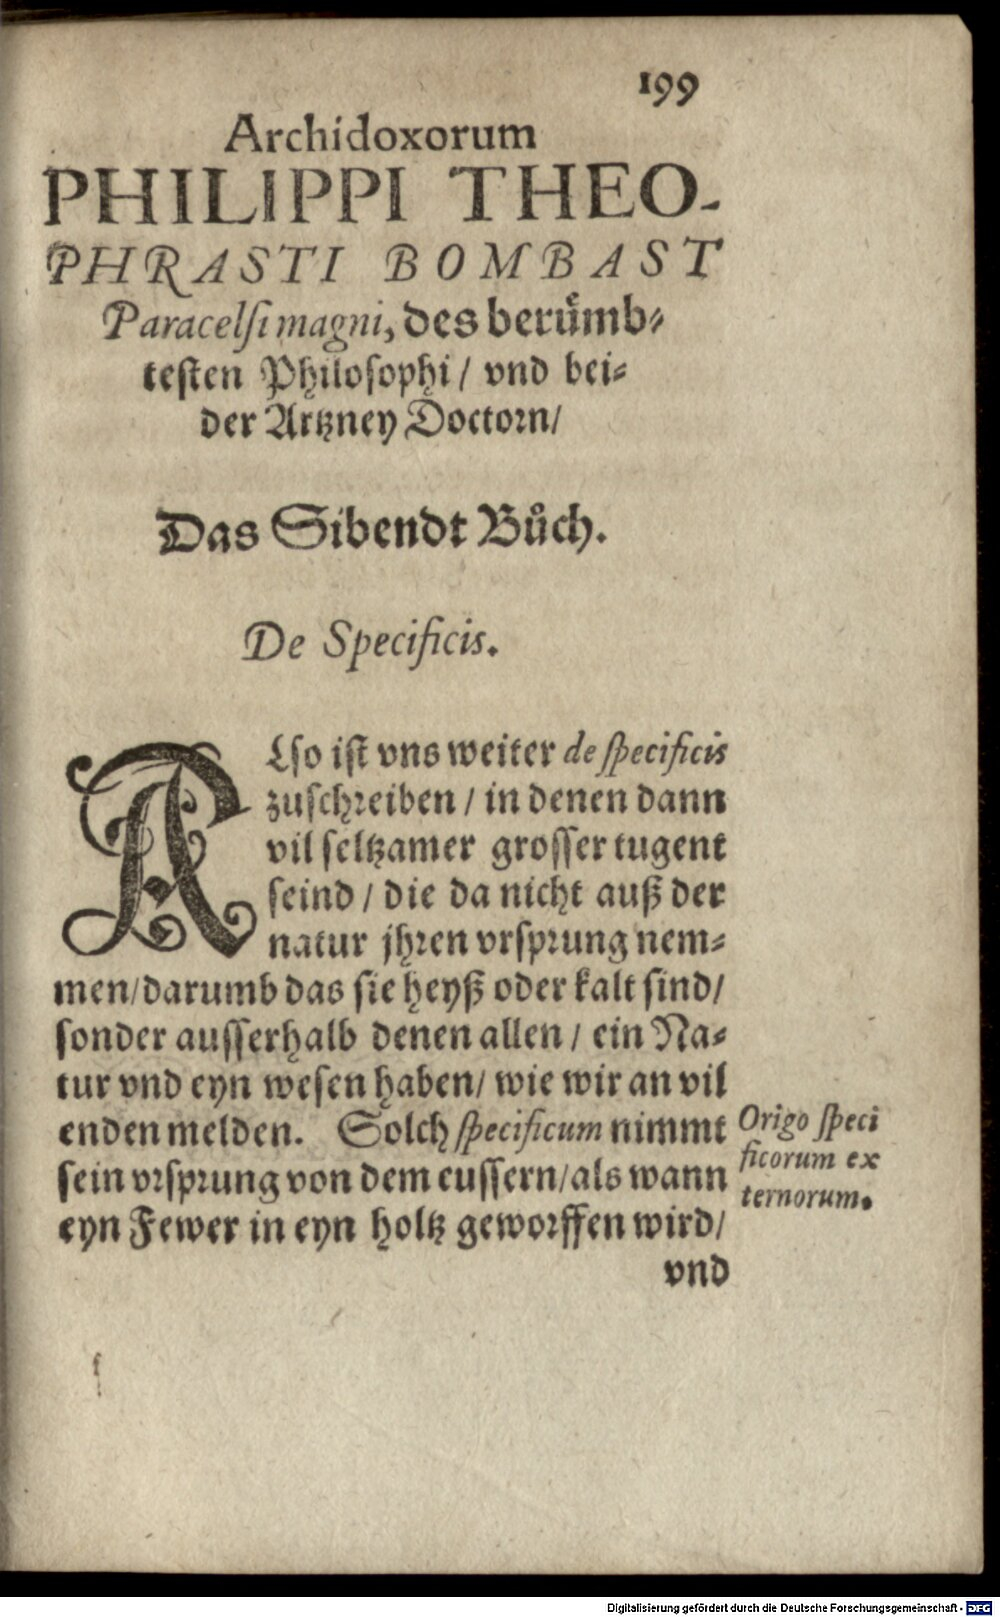 199
Archidoxorum
PHILIPPI THEO-
PHRASTI BOMBAST
Paracelſi magni, des beruͤmb⸗
teſten Philoſophi / vnd bei⸗
der Artzney Doctorn /
Das Sibendt Bůch.
De Specificis.
ALſo iſt vns weiter de ſpecificis
zuſchreiben / in denen dann
vil ſeltzamer groſſer tugent
ſeind / die da nicht auß der
natur jhren vrſprung nem⸗
men / darumb das ſie heyß oder kalt ſind /
ſonder auſſerhalb denen allen / ein Na⸗
tur vnd eyn weſen haben / wie wir an vil
enden melden. Solch ſpecificum nimmt
ſein vrſprung von dem euſſern / als wann
eyn Fewer in eyn holtz geworffen wird /
vnd
Origo ſpeci
ficorum ex
ternorum.
Digitalisierung gefördert durch die Deutsche Forschungsgemeinschaft - DFG